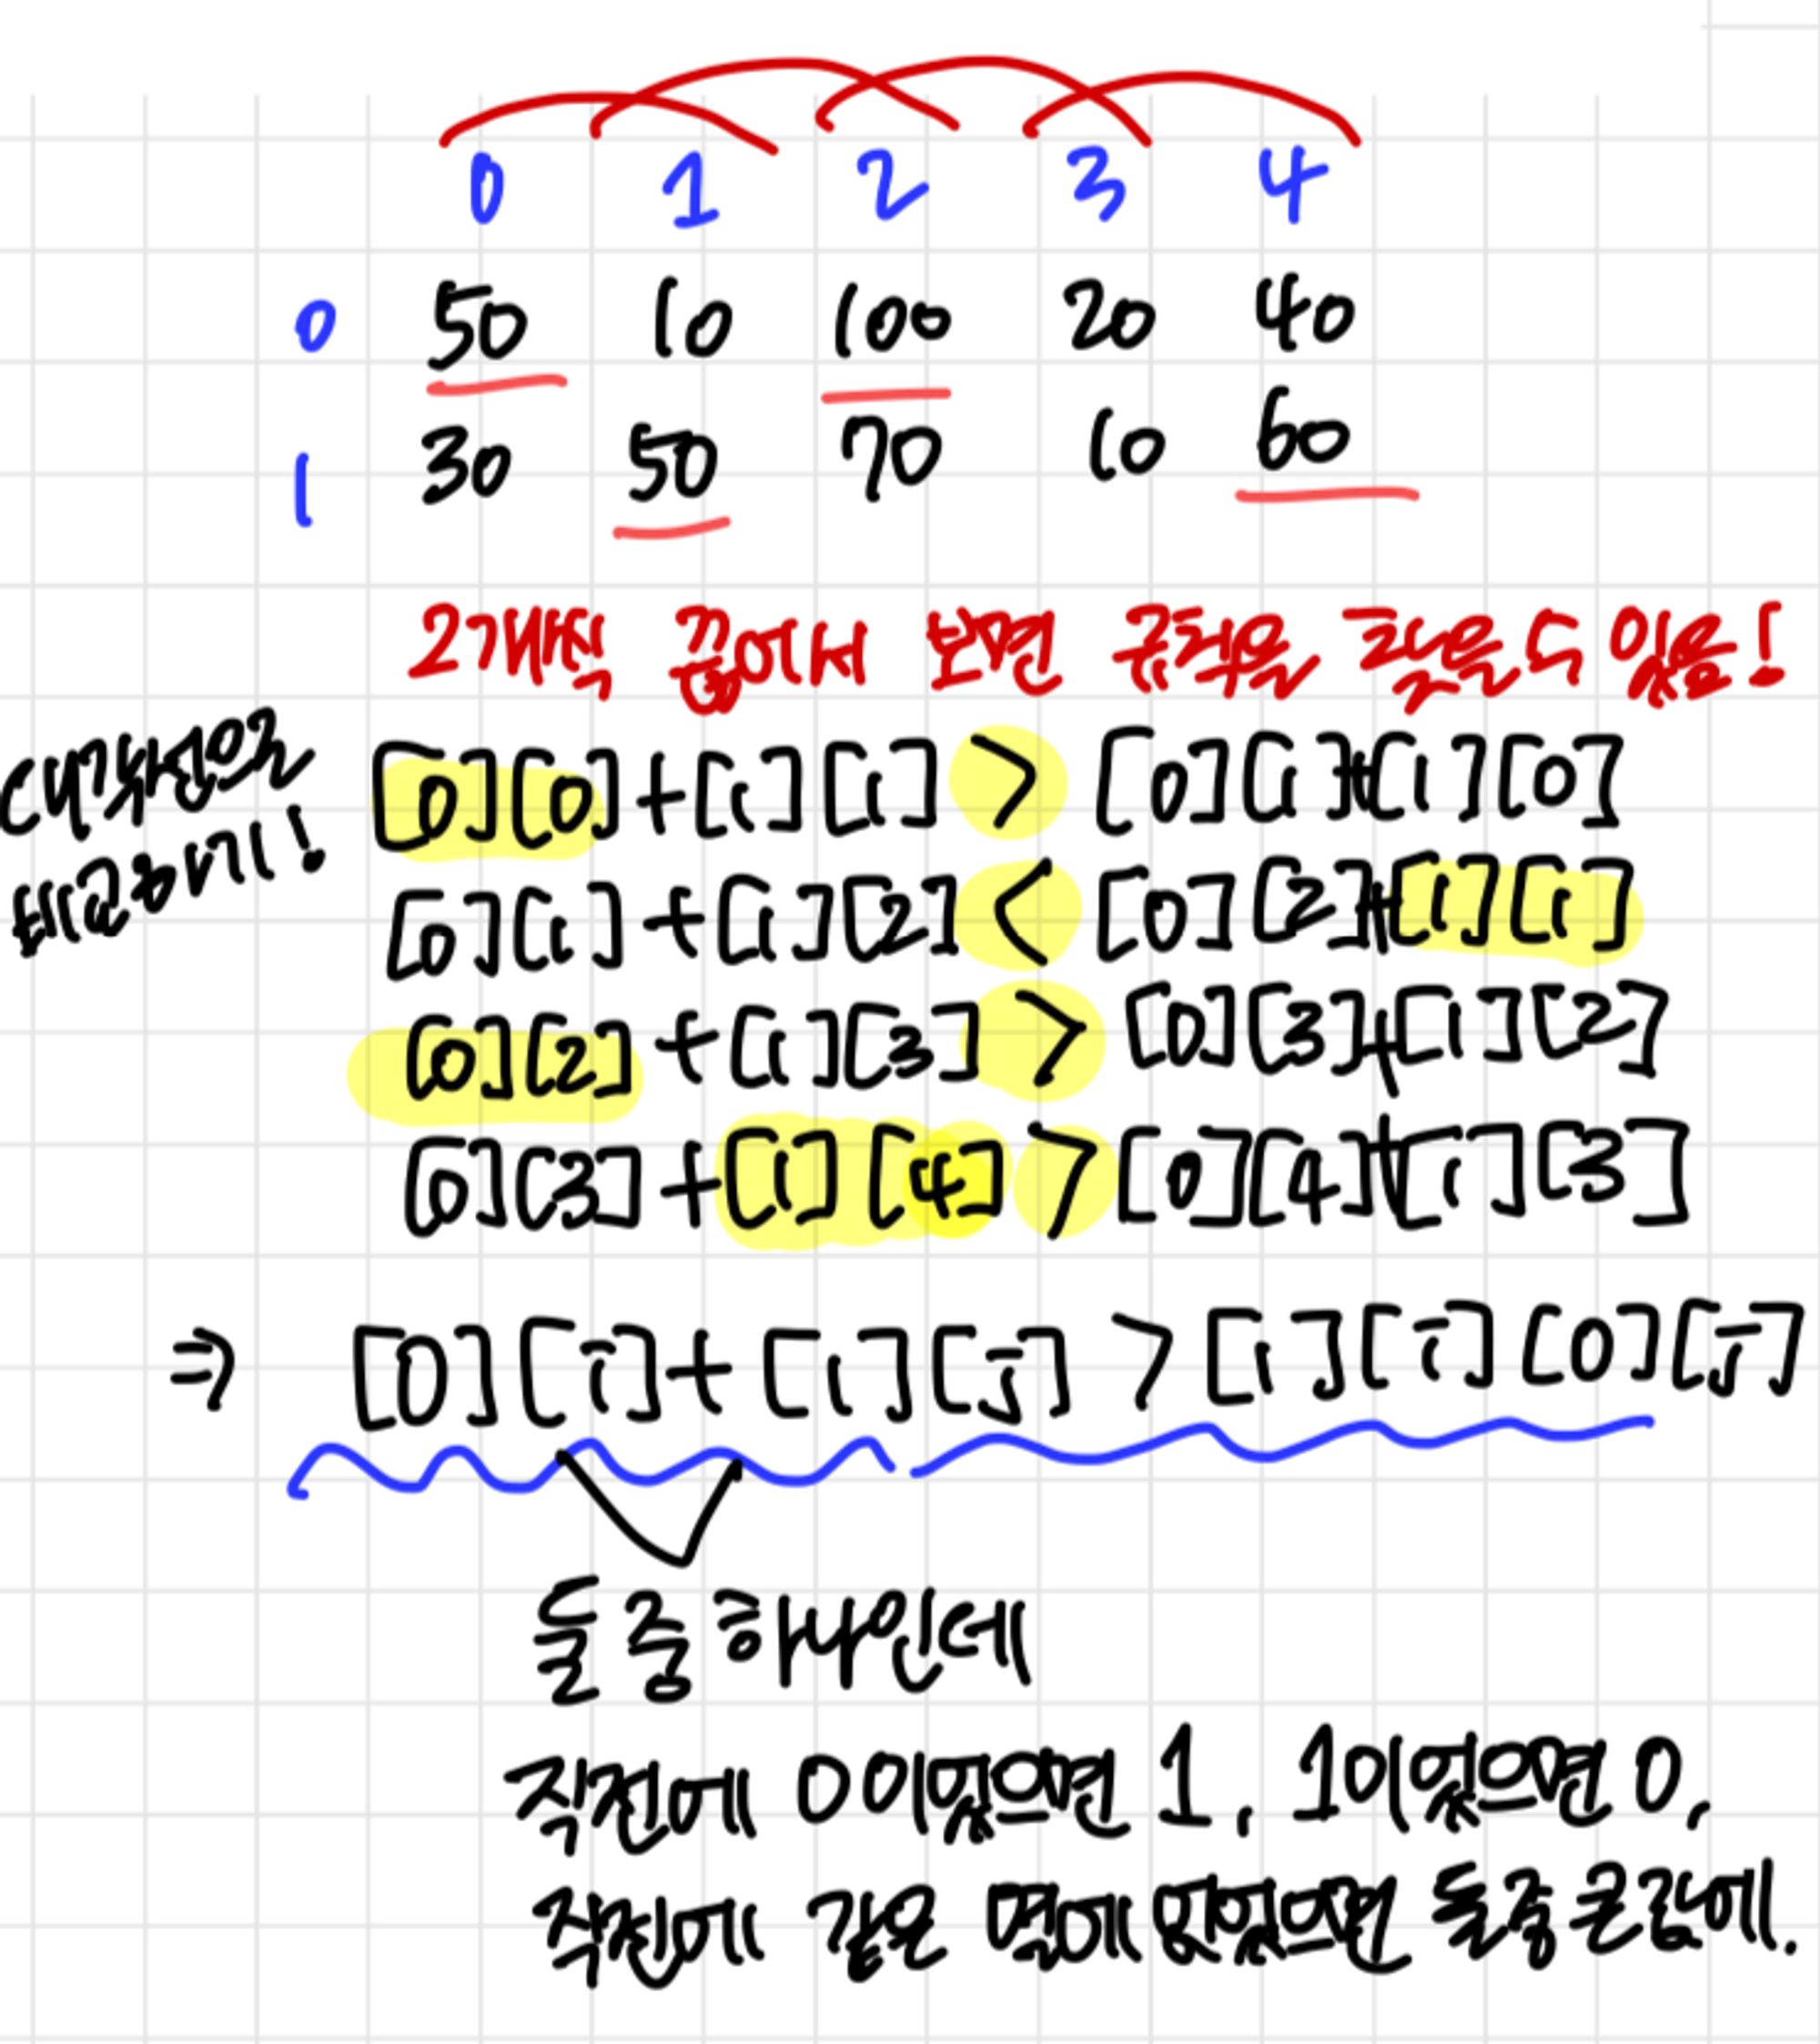 0 1 2 3 4
0 50 10 100 20 40
1 30 50 70 10 60
2개씩 끊어서 보면 규칙을 찾을 수 있음!
대각선으로
[0][0]+[1][1] > [0][1]+[1][0]
[0][1]+[1][2] < [0][2]+[1][1]
[0][2]+[1][3] > [0][3]+[1][2]
[0][3]+[1][4] > [0][4]+[1][3]
⇒ [0][i]+[1][j] > [1][i][0][j]
둘 중 하나인데
직전에 0이었으면 1, 1이었으면 0,
직전에 같은 없었으면 둘 중 큰